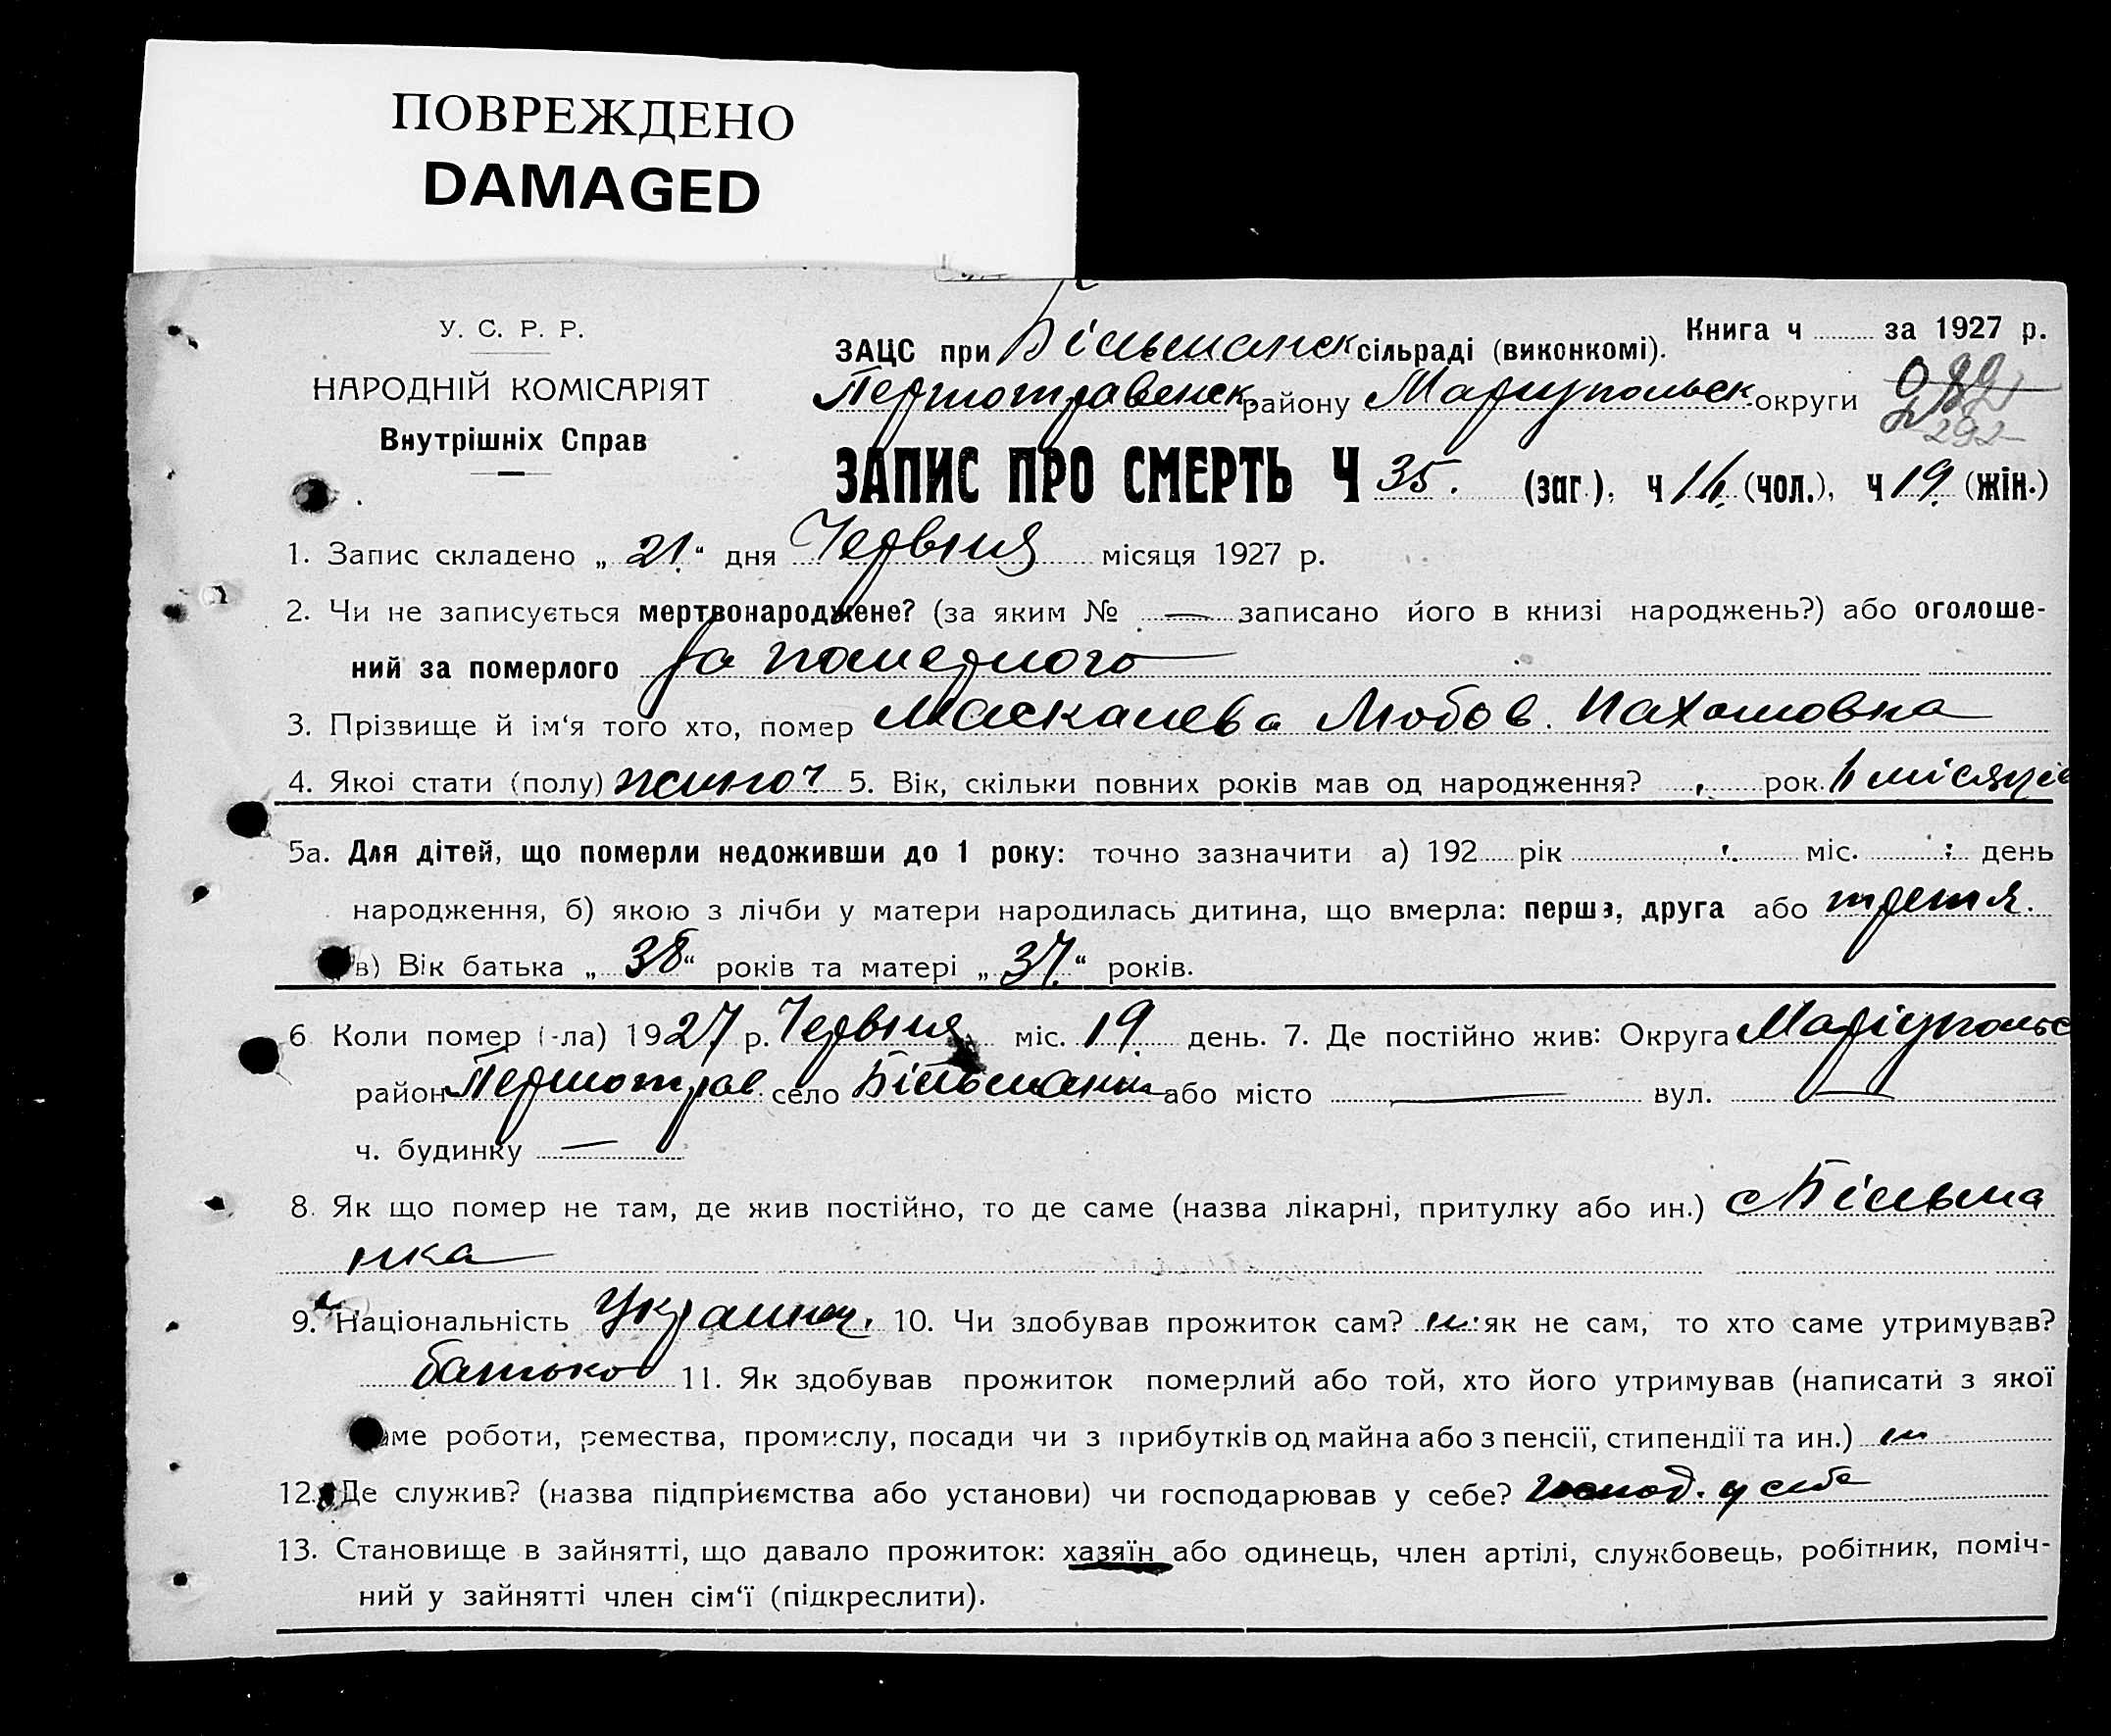 ПОВРЕЖДЕНО
DAMAGED
У. С. Р. Р.
НАРОДНІЙ КОМІСАРІЯТ
Внутрішніх Справ
Книга ч за 1927 р.
ЗАЦС при Більманск сільраді (виконкомі).
Першотравенск району Маріупольск округи
292
ЗАПИС ПРО СМЕРТЬ Ч 35. (заг.), ч (чол.), ч 19. (жін.)
1. Запис складено „ 21. “ дня Червня місяця 1927 р.
2. Чи не записується мертвонароджене? (за яким № — записано його в книзі народжень?) або оголоше-
ний за померлого За померлого
3. Прізвище й ім‘я того хто, помер Маскалева Любов. Пахомовна
4. Якоі стати (полу) жиноч 5. Вік, скільки повних років мав од народження? рок. місяців
5а. Для дітей, що померли недоживши до 1 року: точно зазначити а) 192 рік міс. день
народження, б) якою з лічби у матери народилась дитина, що вмерла: перша, друга або третя.
в) Вік батька „ 38 “ років та матері „ 37. “ років.
6 Коли помер (-ла) 1927 р. Червня міс. 19. день. 7. Де постійно жив: Округа Маріупольс
район Першотрав. село Більманка або місто — вул. —
ч. будинку —
8. Як що помер не там, де жив постійно, то де саме (назва лікарні, притулку або ин.) с Більма
нка
9. Національність Украинка. 10. Чи здобував прожиток сам? ні як не сам, то хто саме утримував?
батько 11. Як здобував прожиток померлий або той, хто його утримував (написати з якої
саме роботи, ремества, промислу, посади чи з прибутків од майна або з пенсії, стипендії та ин.)
12. Де служив? (назва підприємства або установи) чи господарював у себе? Господ. у себе
13. Становище в зайнятті, що давало прожиток: хазяїн або одинець, член артілі, службовець, робітник, поміч-
ний у зайнятті член сім‘ї (підкреслити).